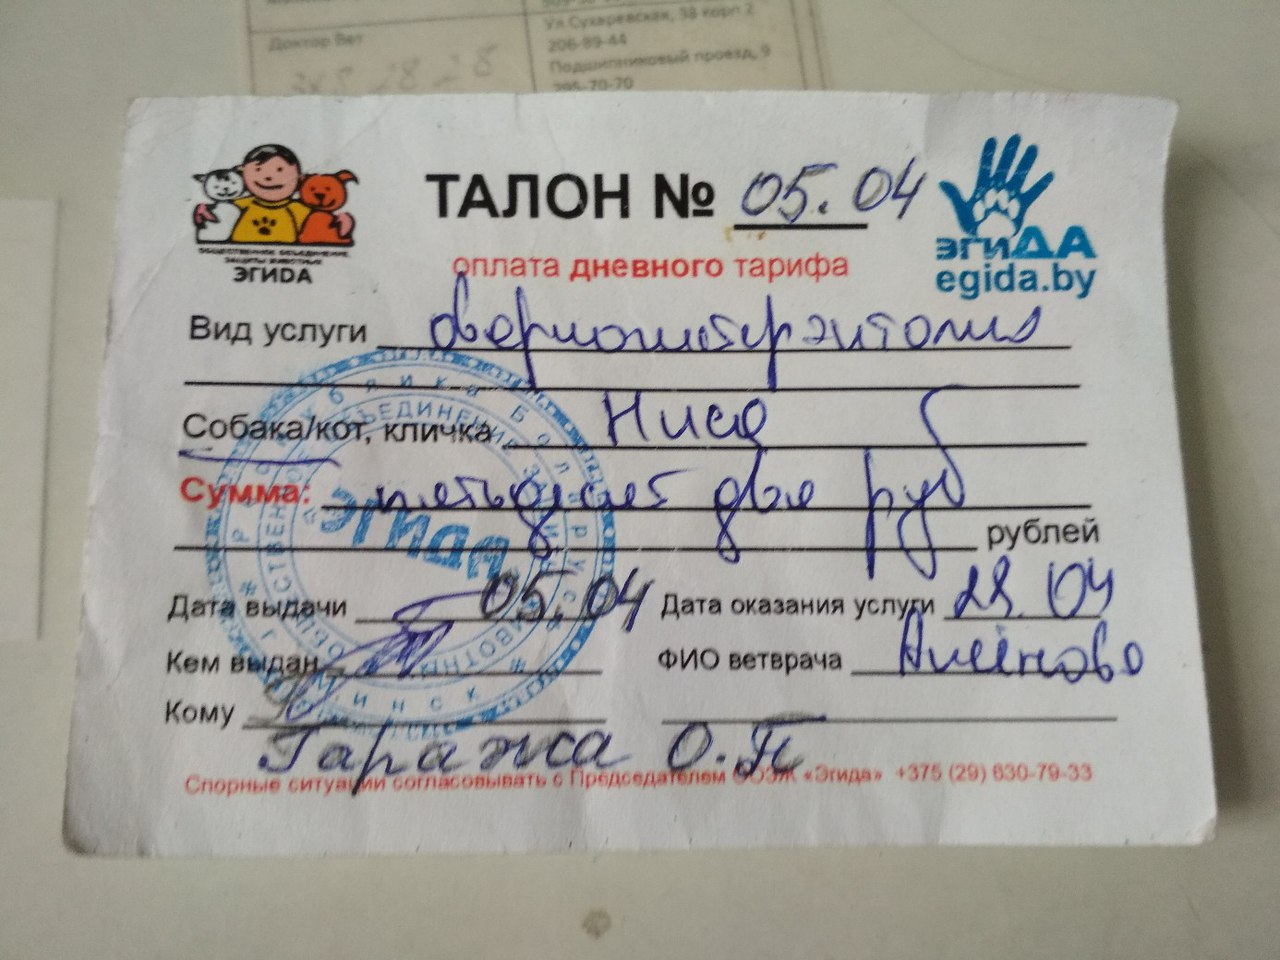 Доктор Вет
Ул Сухаревская, 38 корп 2
206-89-44
Подшипниковый проезд, 9
295-70-70
ОБЩЕСТВЕННОЕ ОБЪЕДИНЕНИЕ
ЗАЩИТЫ ЖИВОТНЫХ
ЭГИDA
ТАЛОН № 05.04
эгиДА
egida.by
оплата дневного тарифа
Вид услуги овариогистерэктомия
Собака/кот, кличка Ниса
Сумма: пятьдесят два руб
рублей
Дата выдачи 05.04 Дата оказания услуги 28.04
Кем выдан ФИО ветврача
Кому
Гаражса О.П
Спорные ситуации согласовывать с Председателем ООЗЖ «Эгида» +375 (29) 630-79-33
Республика Беларусь
г. Минск
«ЭГИДА»